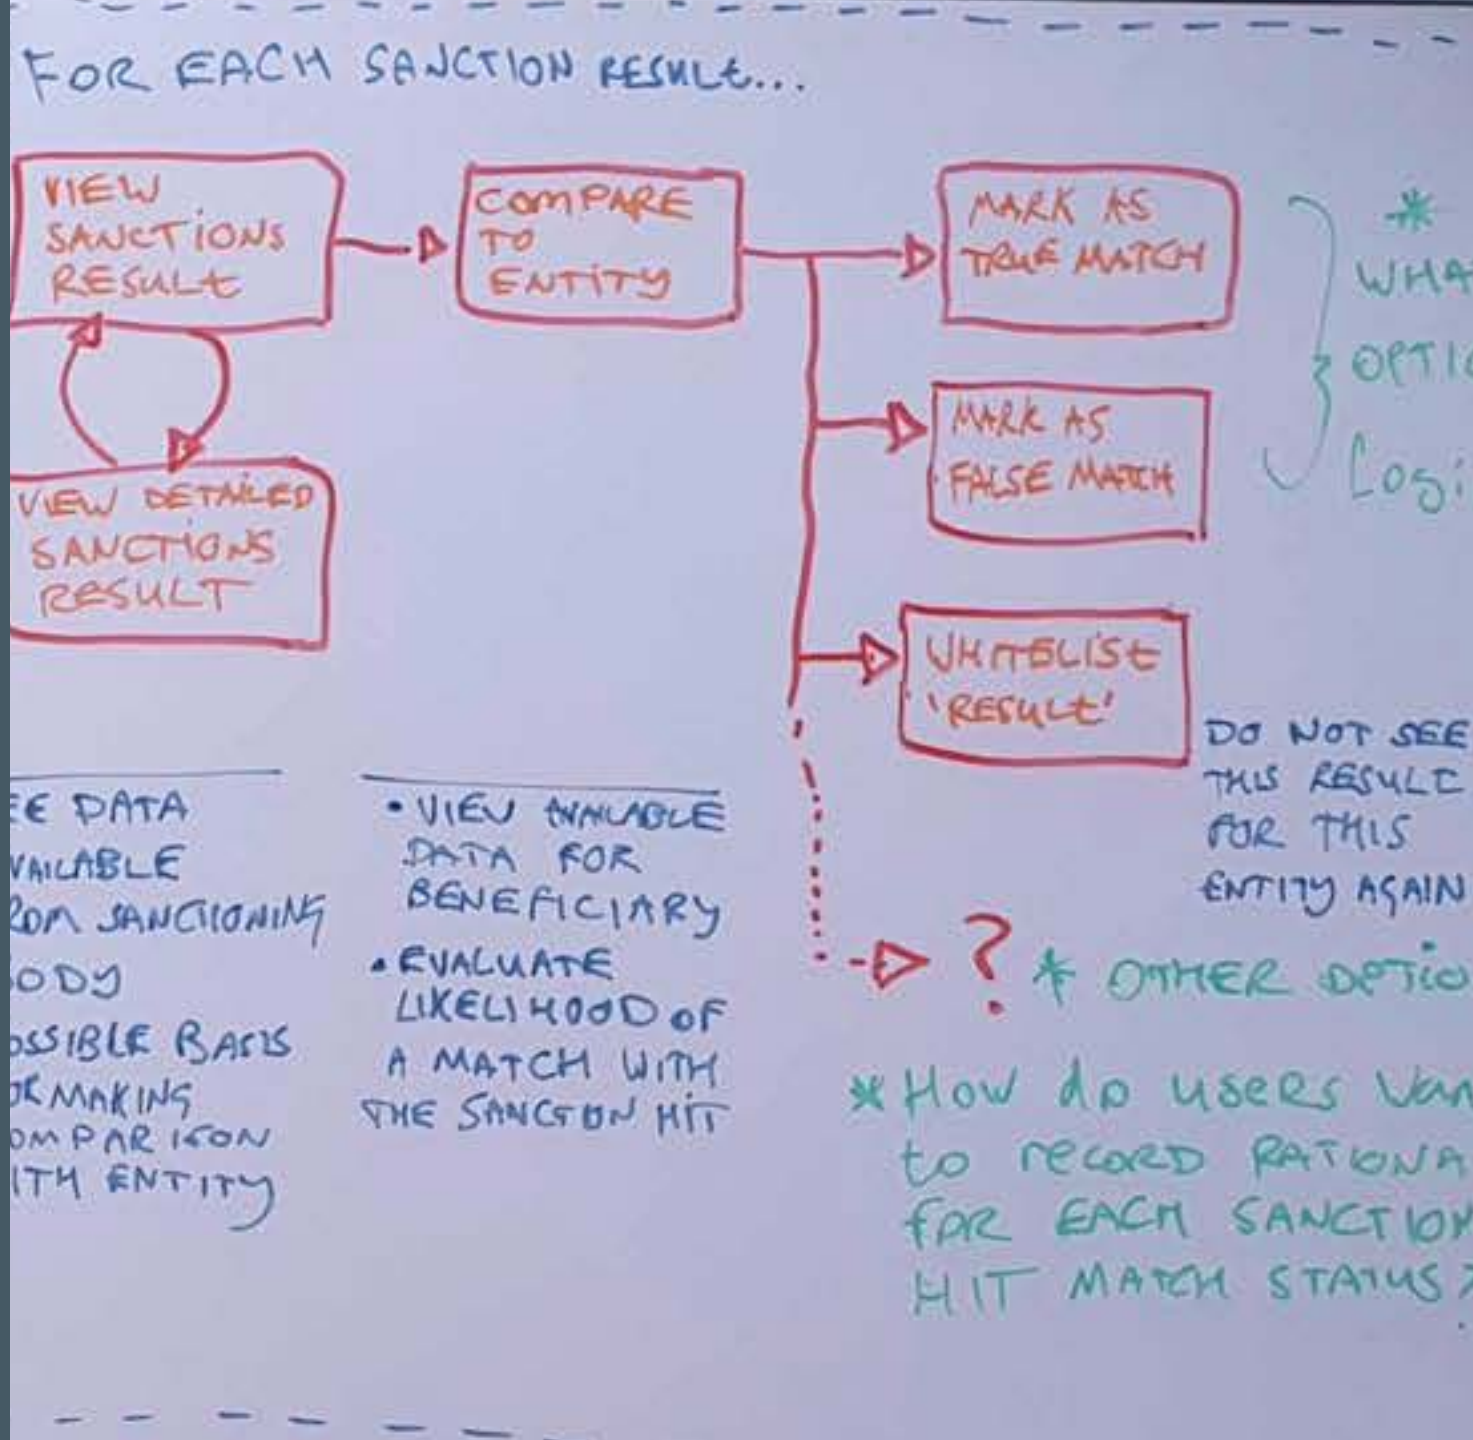 FOR EACH SANCTION RESULt...
VIEW
SANCTIONS
RESULt
COMPARE
TO
ENTITY
MARK AS
TRUE MATCH
*
WHA
OPTIO
Logi
MARK AS
FALSE MATCH
VIEW DETAILED
SANCTIONS
RESULT
WHITELISt
'RESULt'
DO NOT SEE
THIS RESULt
FOR THIS
ENTITY AGAIN
EE DATA
VAILABLE
ROM SANCTIONING
ODY
OSSIBLE BASIS
OR MAKING
OMPARISON
ITH ENTITY
• VIEW AVAILABLE
DATA FOR
BENEFICIARY
• EVALUATE
LIKELIHOOD OF
A MATCH WITH
THE SANCTON HIT
? * OTHER OPTIO
* How do users wan
to record RATIONA
for EACH SANCTION
HIT MATCH STATUS?